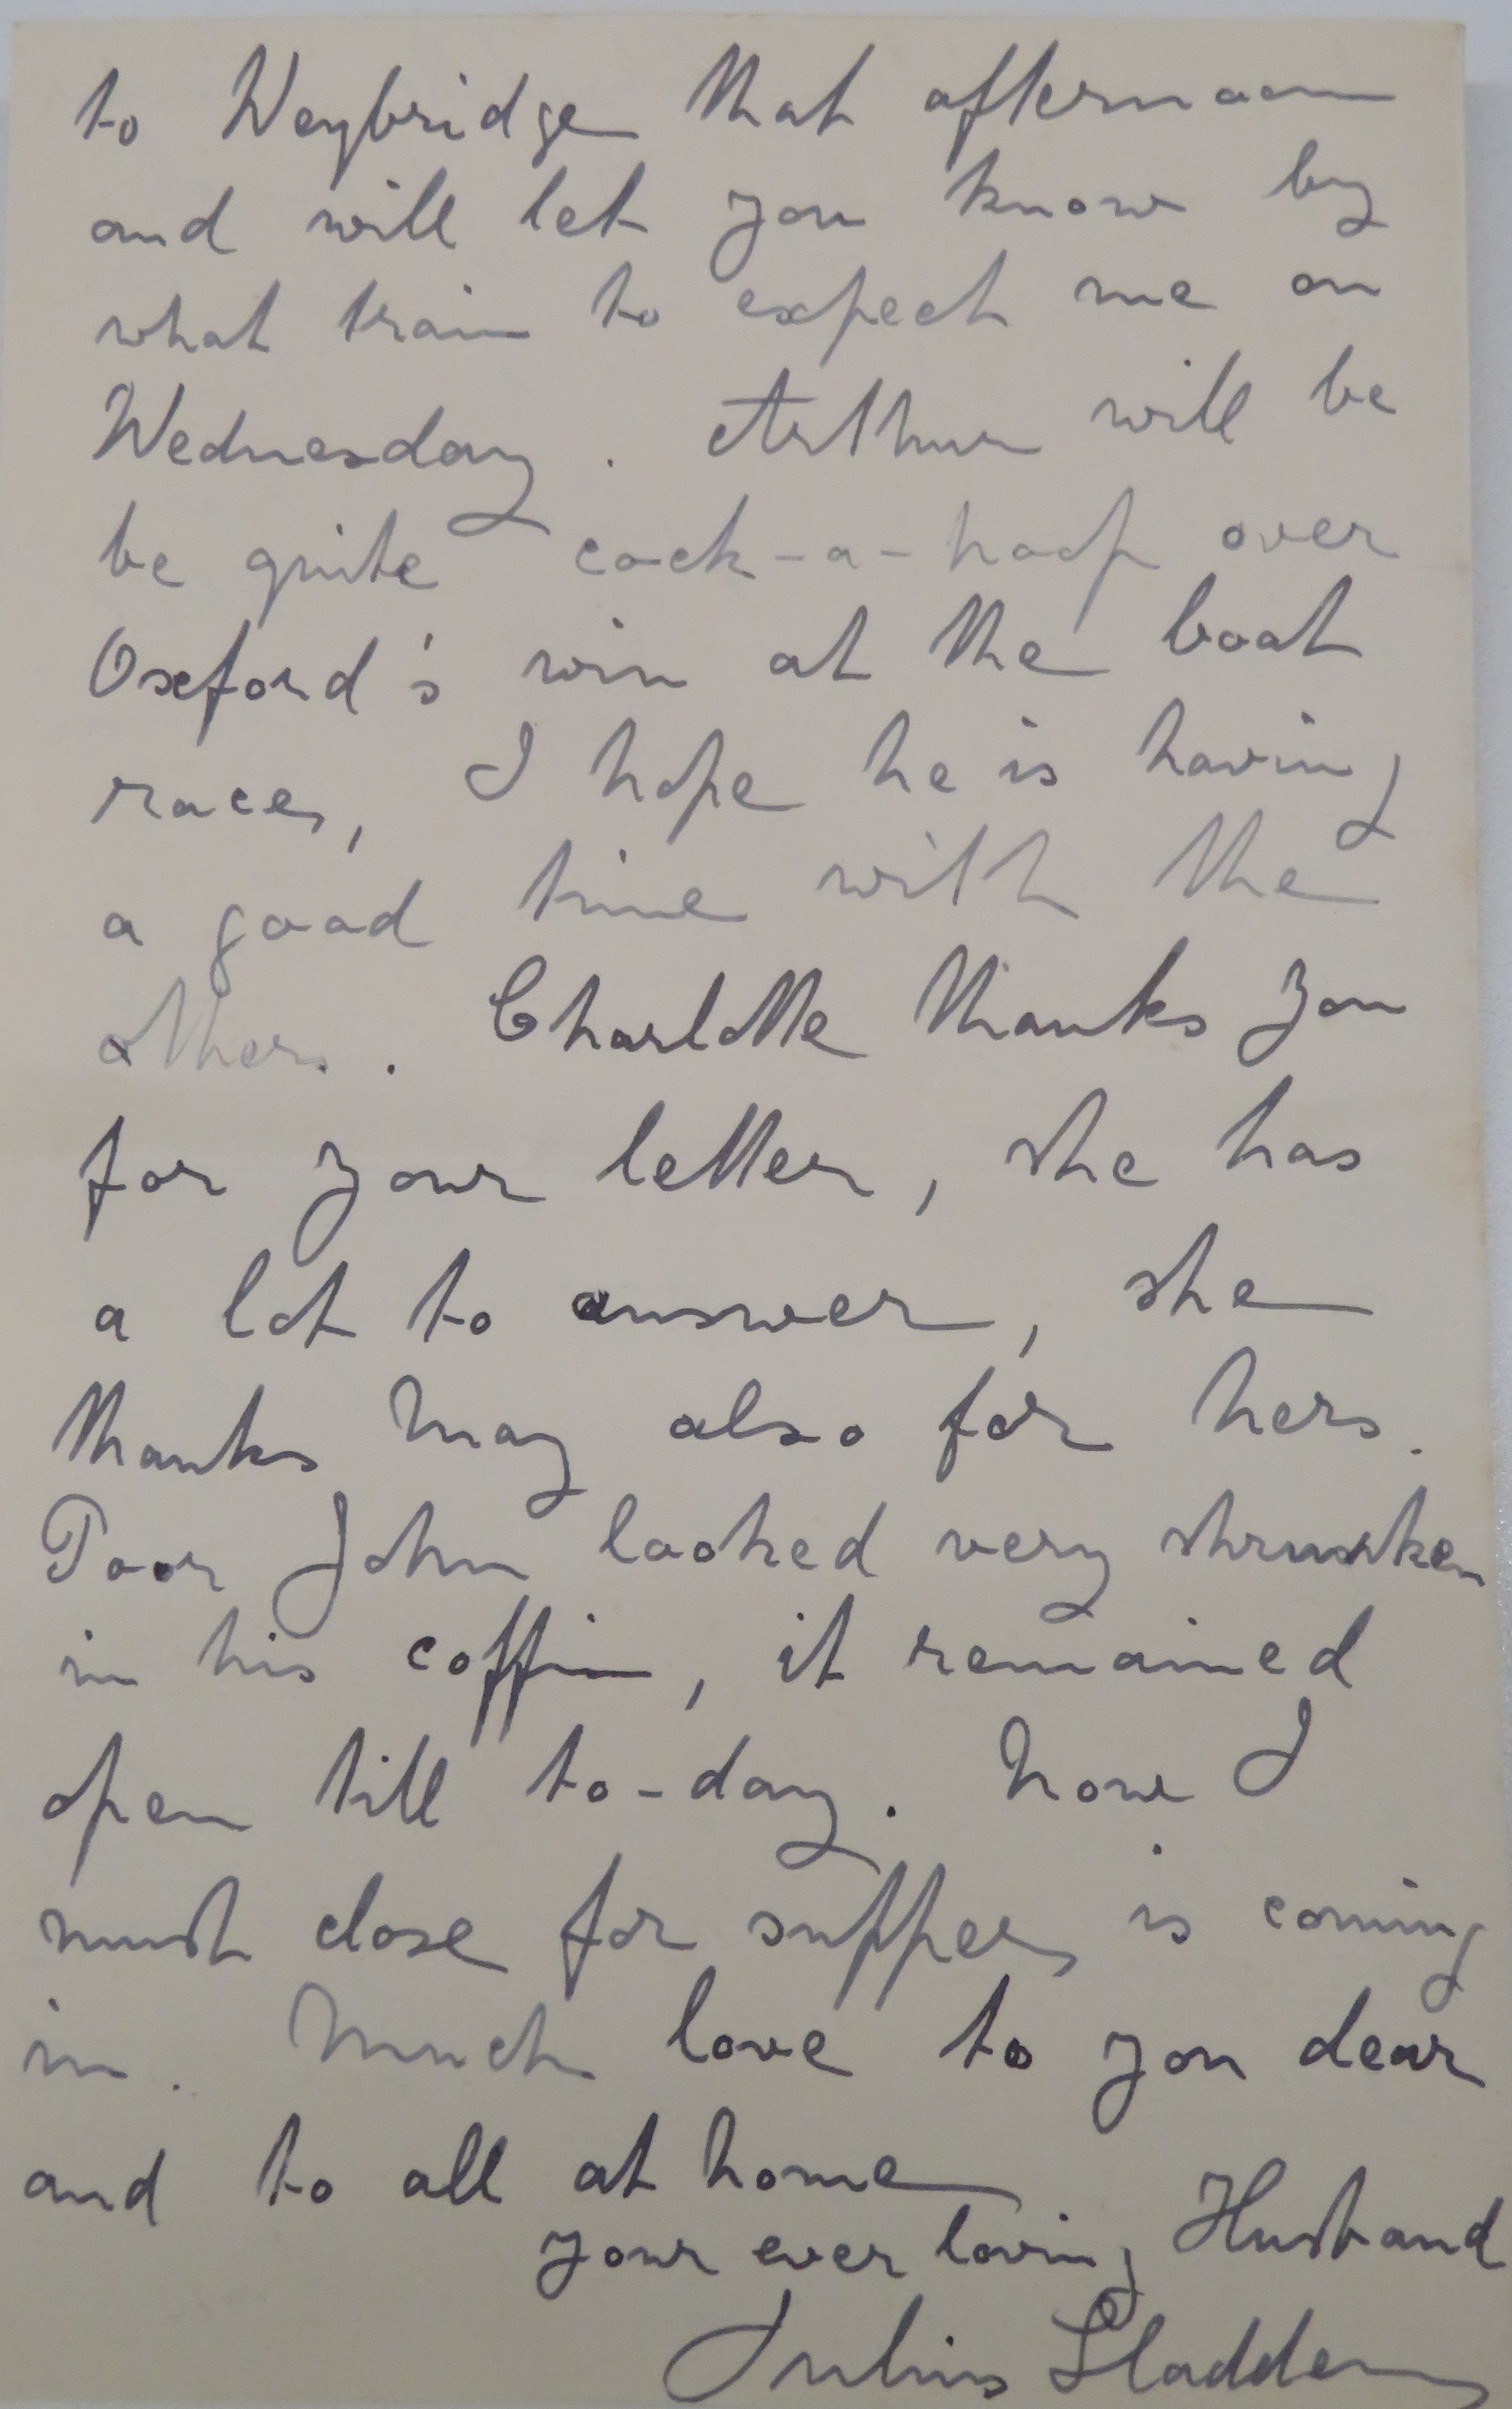 to Weybridge that afternoon
and will let you know by
what train to expect me on
Wednesday. Arthur will be
be quite cock-a-hoop over
Oxford's win at the boat
races, I hope he is having
a good time with the
others. Charlotte thanks you
for your letter, she has
a lot to answer, she
thanks May also for hers.
Poor John looked very shrunken
in his coffin, it remained
open till to-day. Now I
must close for supper is coming
in. Much love to you dear
and to all at home
your ever loving Husband
Julius Sladden